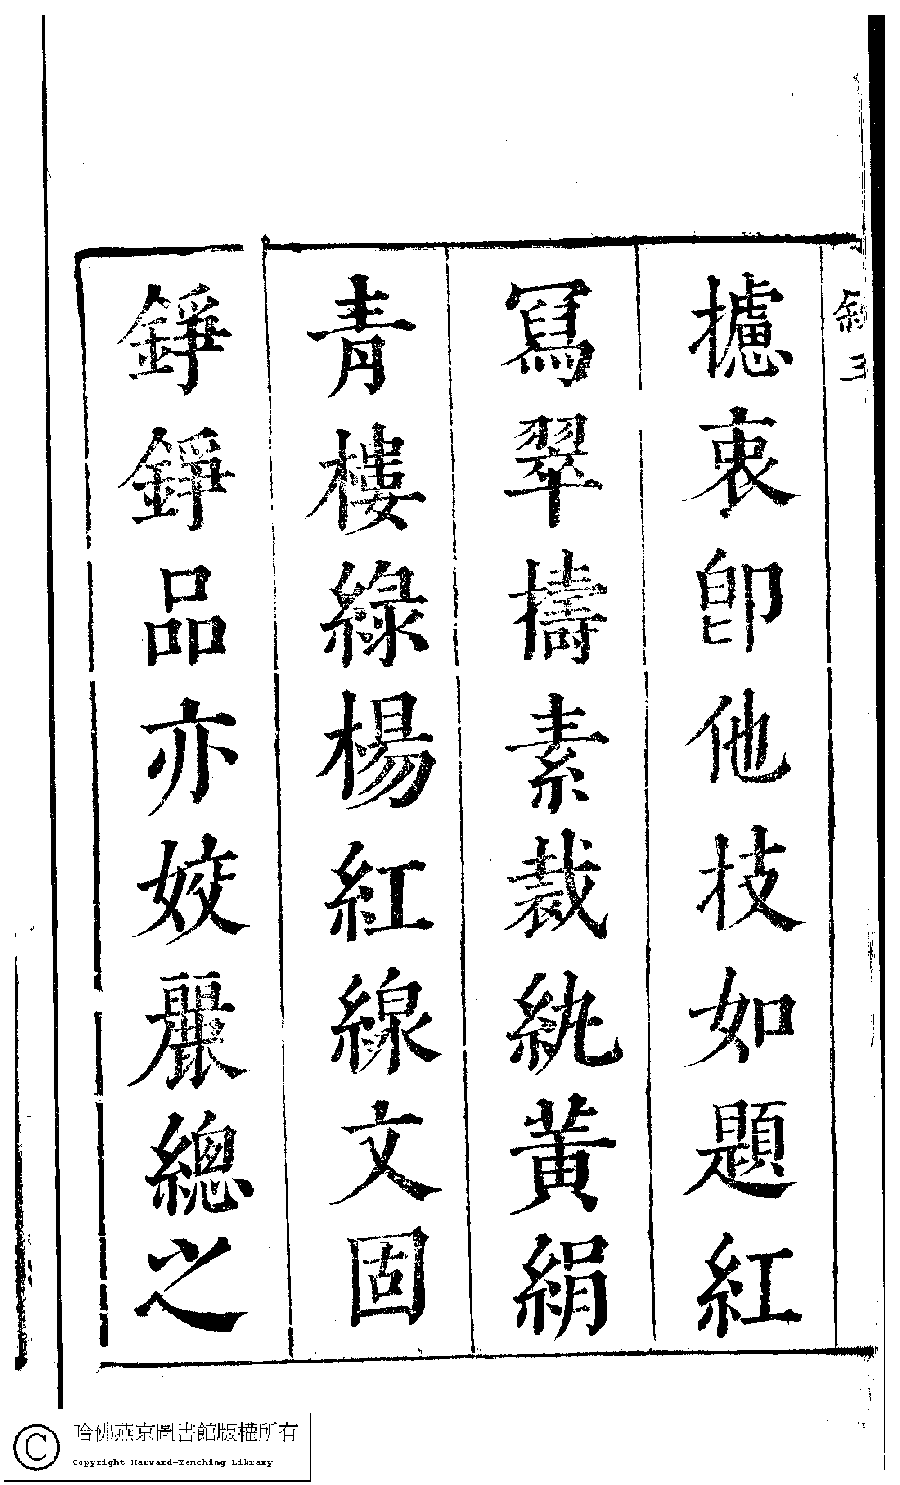 敘三
攄衷卽他技如題紅
寫翠擣素裁紈黃絹
青樓綠楊紅線文固
錚錚品亦姣麗總之
哈佛燕京圖書館版權所有
Copyright Harvard-Yenching Library